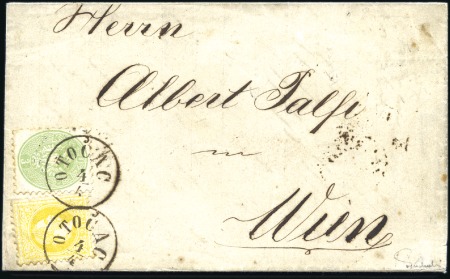 Herrn
Albert Palfi
in
Wien
OTOČAC
4
OTOČAC
4